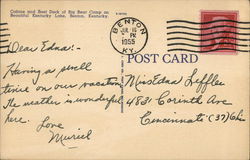 Cabins and Boat Dock of Big Bear Camp on
Beautiful Kentucky Lake, Benton, Kentucky.
BENTON
JUL 16
PM
1955
KY.
POST CARD
Dear Edna:-
Having a swell
time on our vacation.
The weather is wonderful
here. Love
Muriel
Miss Edna Leffler
4831 Corinth Ave
Cincinnati (37) Ohio